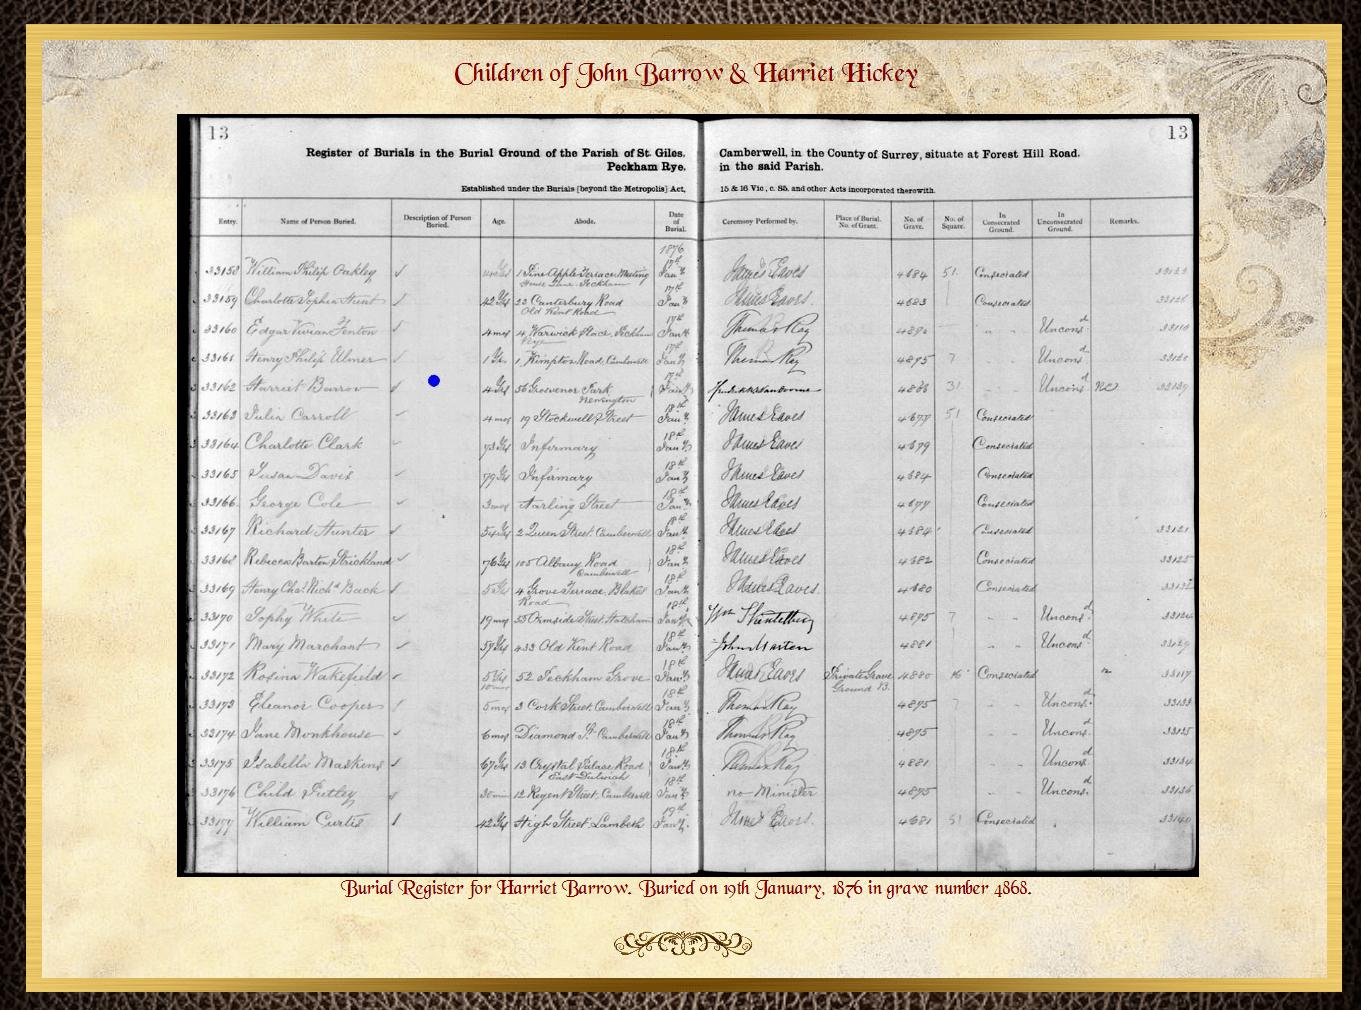 Children of John Barrow & Harriet Hickey
13 13
Register of Burials in the Burial Ground of the Parish of St. Giles, Camberwell, in the County of Surrey, situate at Forest Hill Road,
Peckham Rye. in the said Parish.
Established under the Burials [beyond the Metropolis] Act, 15 & 16 Vic., c. 85. and other Acts incorporated therewith.
Entry. Name of Person Buried. Description of Person Buried. Age. Abode. Date of Burial. Ceremony Performed by. Place of Burial. No. of Grant. No. of Grave. No. of Square. In Consecrated Ground. In Unconsecrated Ground. Remarks.
1876
33158 William Philip Oakley 1 Pine Apple Terrace Meeting House Lane Peckham 17th Jany James Eaves 4684 51 Consecrated
33159 Charlotte Sophia 42 Yrs 22 Canterbury Road Old Kent Road 17th Jany James Eaves. 4683 Consecrated
33160 Edgar Vivian Fenton 4 mos 4 Warwick Place, Peckham Rye 17th Jany Thomas Ray Unconsd
33161 Henry Philip Ulmer 1 Yr 1 Kimpton Road, Camberwell 17th Jany Thomas Ray 4895 7 Unconsd
33162 Harriet Barrow 4 Yrs 56 Grosvenor Park Newington 17th Jany 4868 31 Unconsd
33163 Julia Carroll 4 mos 19 Stockwell Street 18th Jany James Eaves 4677 51 Consecrated
33164 Charlotte Clark 73 Yrs Infirmary 18th Jany James Eaves 4679 Consecrated
33165 Susan Davis 79 Yrs Infirmary 18th Jany James Eaves 4684 Consecrated
33166 George Cole 3 mos Harling Street 18th Jany James Eaves 4677 Consecrated
33167 Richard Hunter 54 Yrs 2 Queen Street, Camberwell 18th Jany James Eaves 4684 Consecrated 33121
33168 Rebecca Barton Strickland 76 Yrs 105 Albany Road Camberwell 18th Jany James Eaves 4682 Consecrated 33125
33169 Henry Chas. Richd Back 5 Yrs 4 Grove Terrace, Blakes Road 18th Jany James Eaves. 4680 Consecrated
33170 Sophy White 19 mos 55 Ormside Street Hatcham 18th Jany Wm 4895 7 Unconsd
33171 Mary Marchant 59 Yrs 433 Old Kent Road 18th Jany John Marten 4881 Unconsd
33172 Rosina Wakefield 5 Yrs 10 mos 52 Peckham Grove 18th Jany James Eaves Private Grave Ground B. 4880 16 Consecrated 33117
33173 Eleanor Cooper 5 mos 3 Cork Street, Camberwell 18th Jany Thomas Ray 4895 7 Unconsd 33133
33174 Jane Monkhouse 6 mos Diamond St. Camberwell 18th Jany Thomas Ray 4895 Unconsd
33175 Isabella Maskens 67 Yrs 13 Crystal Palace Road East Dulwich 18th Jany Thomas Ray 4881 Unconsd 33134
33176 Child Futley 12 Regent Street, Camberwell 18th Jany no Minister 4895 Unconsd 33136
33177 William Curtis 42 Yrs High Street Lambeth 19th Jany James Eaves. 4681 51 Consecrated 33140
Burial Register for Harriet Barrow. Buried on 19th January, 1876 in grave number 4868.